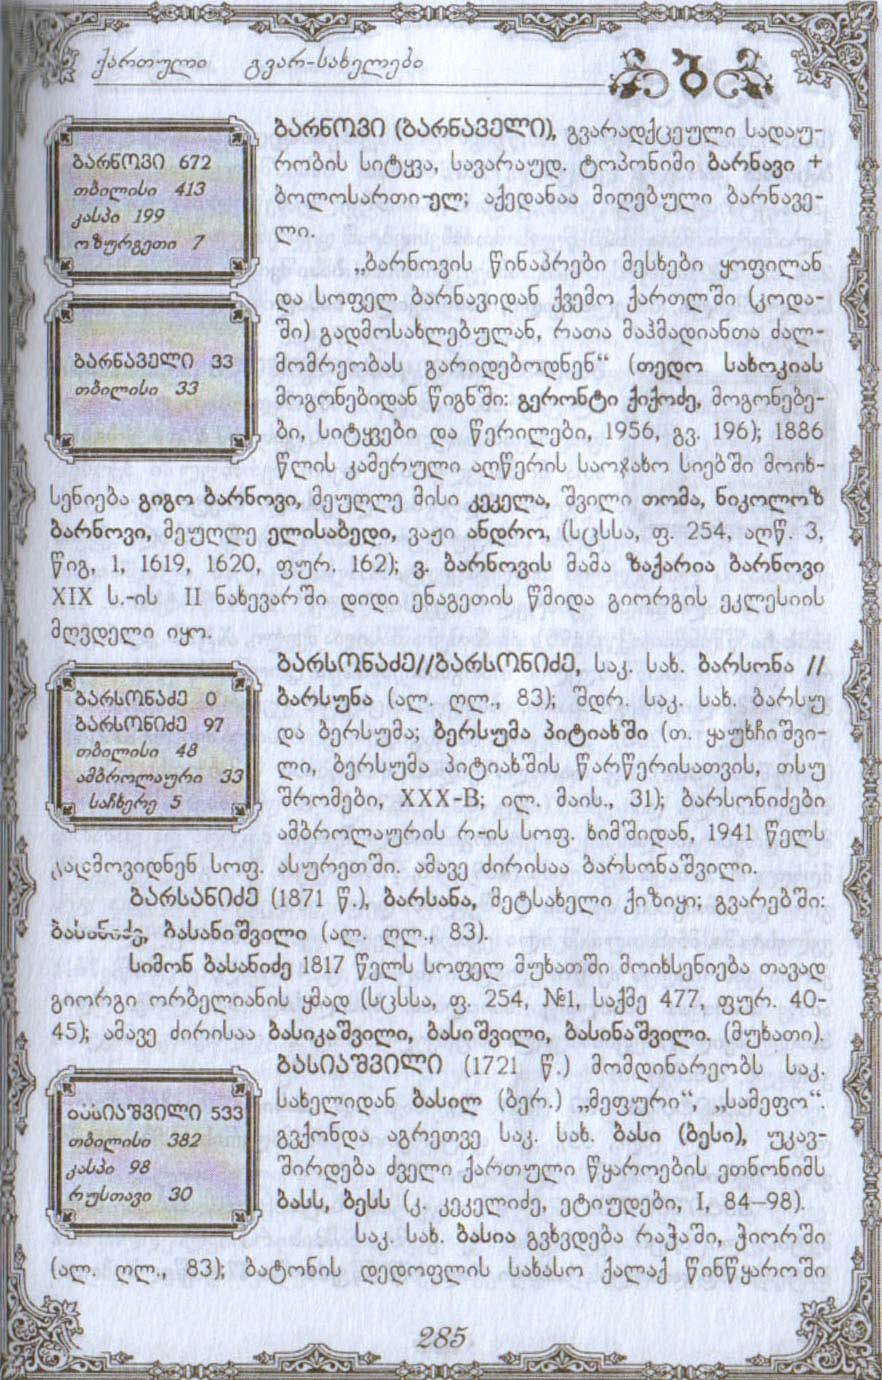 ქართული გვარ-სახელები
ბარნოვი 672
თბილისი 413
კასპი 199
ოზურგეთი 7
ბარნაველი 33
თბილისი 33
ბარნოვი (ბარნაველი), გვარადქცეული სადაუ-
რობის სიტყვა, სავარაუდ. ტოპონიმი ბარნავი +
ბოლოსართი-ელ; აქედანაა მიღებული ბარნავე-
ლი.
„ბარნოვის წინაპრები მესხები ყოფილან
და სოფელ ბარნავიდან ქვემო ქართლში (კოდა-
ში) გადმოსახლებულან, რათა მაჰმადიანთა ძალ-
მომრეობას გარიდებოდნენ“ (თედო სახოკიას
მოგონებიდან წიგნში: გერონტი ქიქოძე, მოგონებე-
ბი, სიტყვები და წერილები, 1956, გვ. 196); 1886
წლის კამერული აღწერის საოჯახო სიებში მოიხ-
სენიება გიგო ბარნოვი, მეუღლე მისი კეკელა, შვილი თომა, ნიკოლოზ
ბარნოვი, მეუღლე ელისაბედი, ვაჟი ანდრო, (სცსსა, ფ. 254, აღწ. 3,
წიგ, 1, 1619, 1620, ფურ. 162); ვ. ბარნოვის მამა ზაქარია ბარნოვი
XIX ს.-ის II ნახევარში დიდი ენაგეთის წმიდა გიორგის ეკლესიის
მღვდელი იყო.
ბარსონაძე 0
ბარსონიძე 97
თბილისი 48
ამბროლაური 33
საჩხერე 5
ბარსონაძე//ბარსონიძე, საკ. სახ. ბარსონა //
ბარსუნა (ალ. ღლ., 83); შდრ. საკ. სახ. ბარსუ
და ბერსუმა; ბერსუმა პიტიახში (თ. ყაუხჩიშვი-
ლი, ბერსუმა პიტიახშის წარწერისათვის, თსუ
შრომები, XXX-B; ილ. მაის., 31); ბარსონიძები
ამბროლაურის რ-ის სოფ. ხიმშიდან, 1941 წელს
გადმოვიდნენ სოფ. ასურეთში. ამავე ძირისაა ბარსონაშვილი.
ბარსანიძე (1871 წ.), ბარსანა, მეტსახელი ქიზიყი; გვარებში:
ბასანაძე, ბასანიშვილი (ალ. ღლ., 83).
სიმონ ბასანიძე 1817 წელს სოფელ მუხათში მოიხსენიება თავად
გიორგი ორბელიანის ყმად (სცსსა, ფ. 254, №1, საქმე 477, ფურ. 40-
45); ამავე ძირისაა ბასიკაშვილი, ბასიშვილი, ბასინაშვილი. (მუხათი).
ბასიაშვილი 533
თბილისი 382
კასპი 98
რუსთავი 30
ბასიაშვილი (1721 წ.) მომდინარეობს საკ.
სახელიდან ბასილ (ბერ.) „მეფური“, „სამეფო“.
გვქონდა აგრეთვე საკ. სახ. ბასი (ბესი), უკავ-
შირდება ძველი ქართული წყაროების ეთნონიმს
ბასს, ბესს (კ. კეკელიძე, ეტიუდები, I, 84—98).
საკ. სახ. ბასია გვხვდება რაჭაში, ჭიორში
(ალ. ღლ., 83); ბატონის დედოფლის სახასო ქალაქ წინწყაროში
285